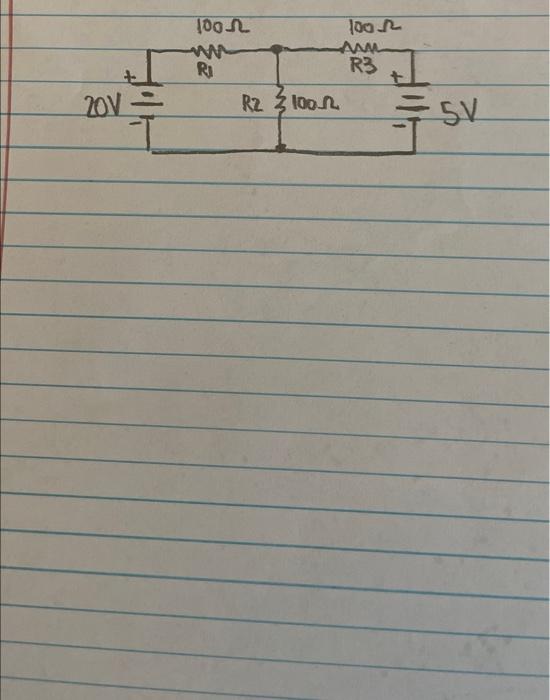 100Ω 100Ω
R1 R3
+ +
20V R2 100Ω 5V
- -